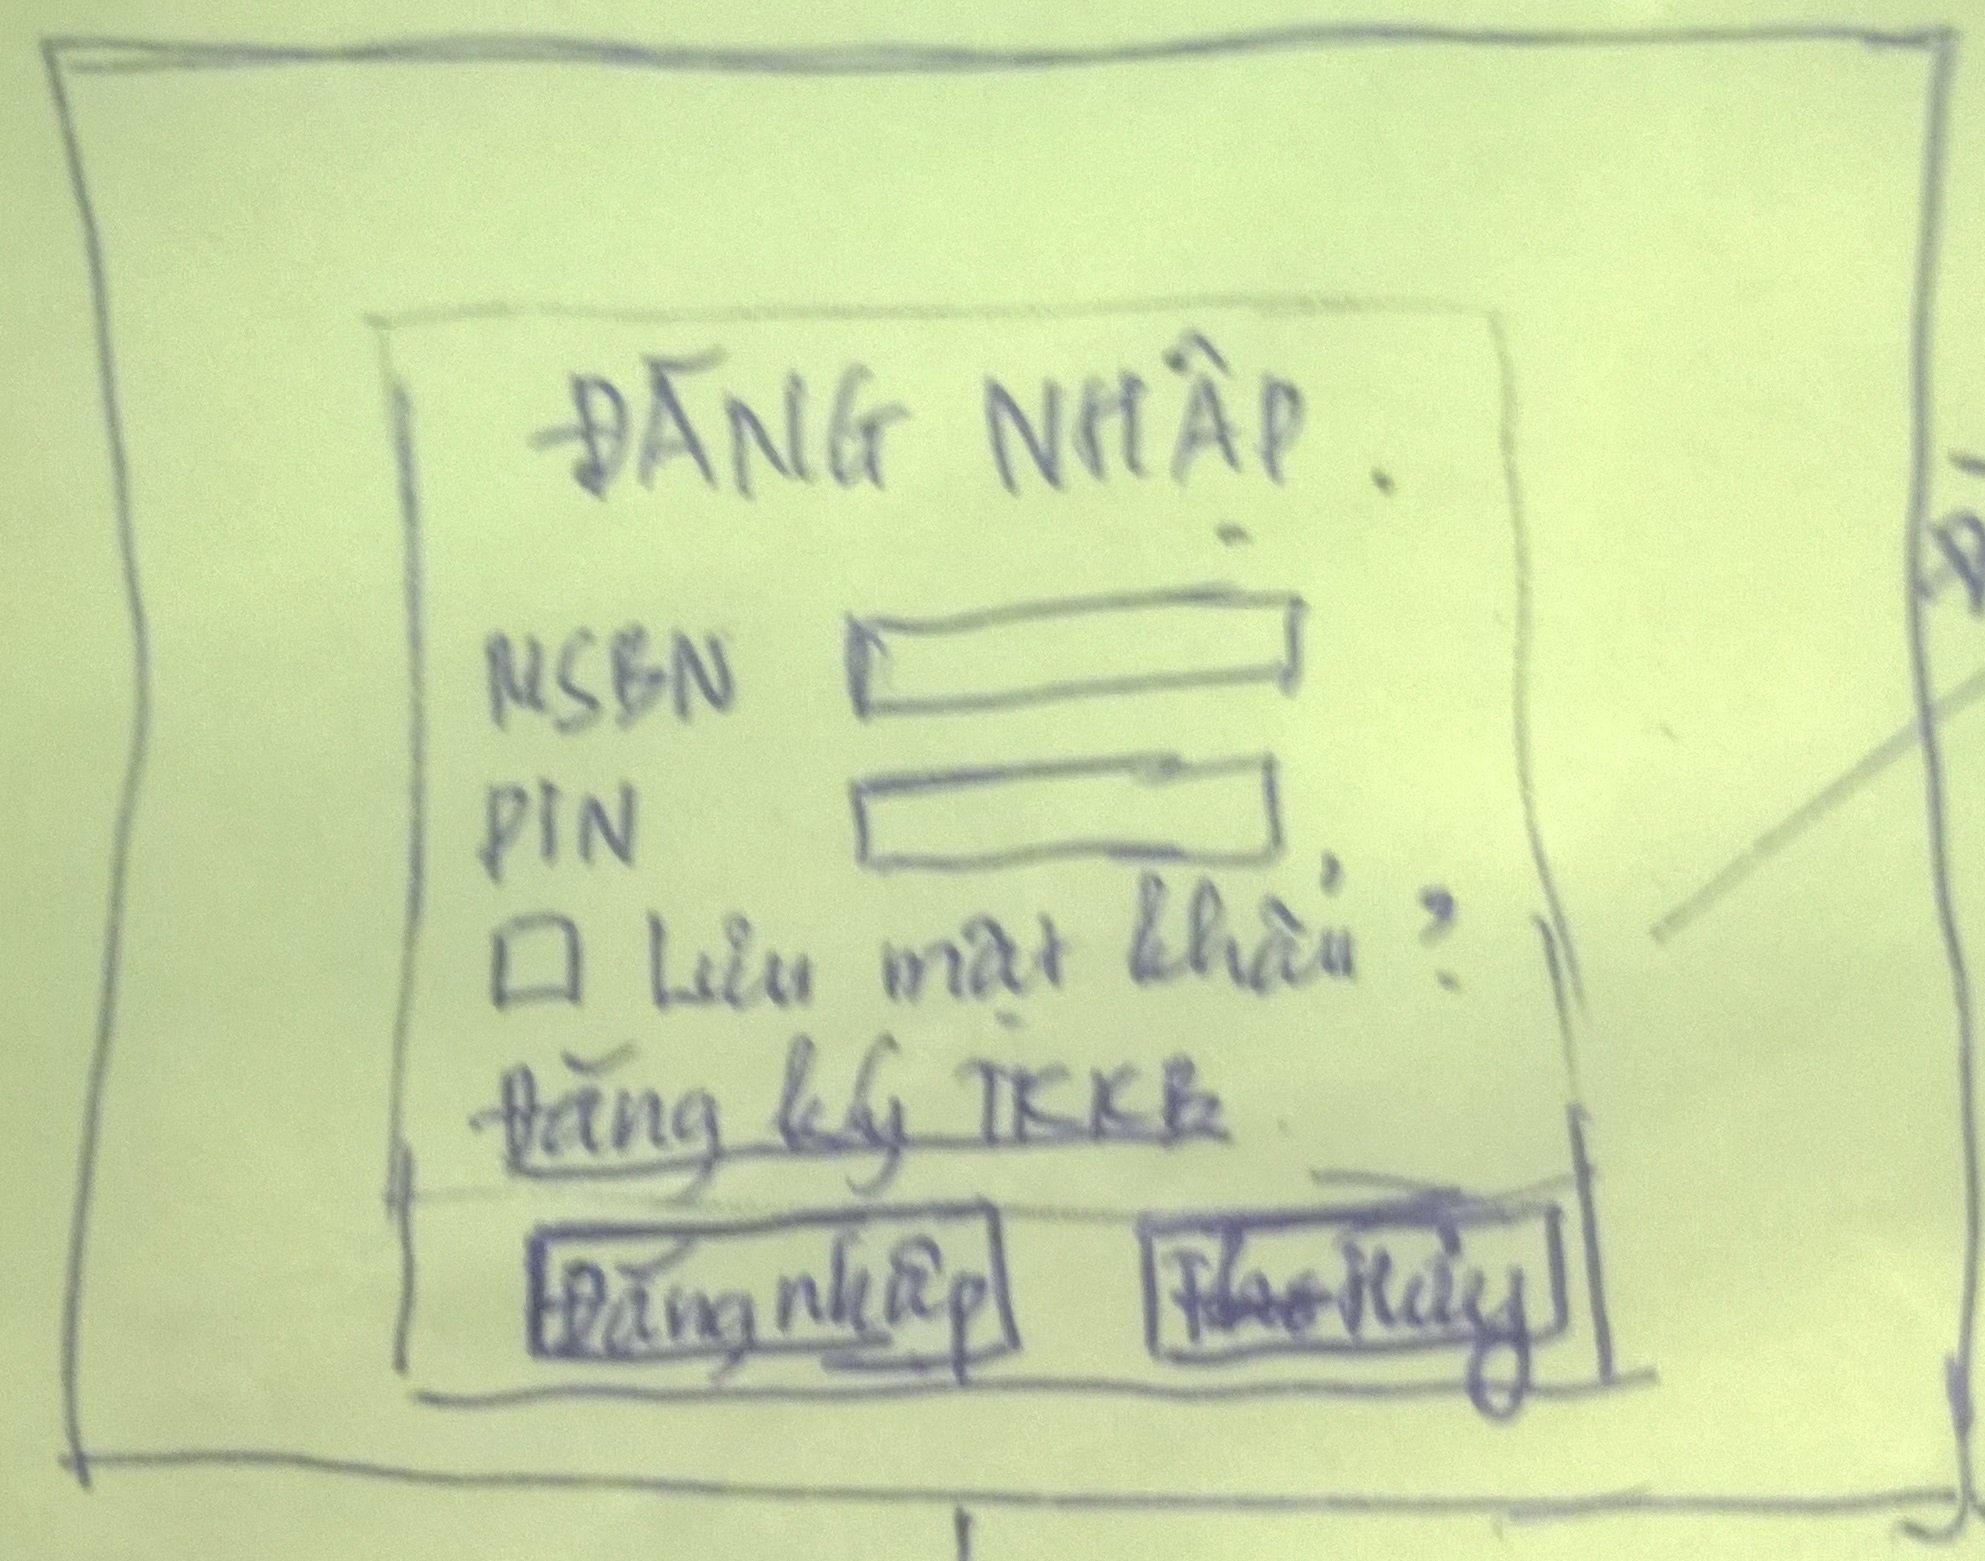 ĐĂNG NHẬP.
MSBN
PIN
Lưu mật khẩu?
Đăng ký TKKB
Đăng nhập
Hủy